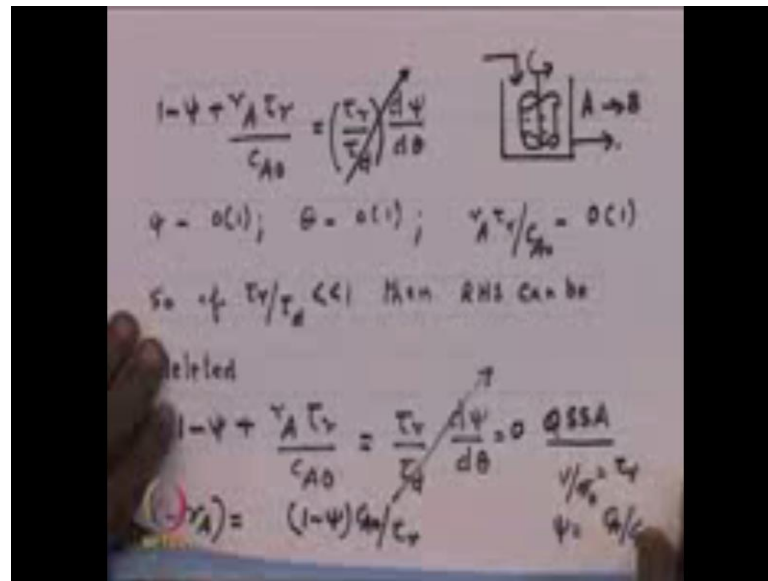 1-ψ + r_A τ_r / C_A0 = (τ_r / τ_d) dψ/dθ
A → B
ψ - O(1); θ = O(1); r_A τ_r / C_A0 - O(1)
So if τ_r/τ_d << 1 then RHS can be
deleted
1-ψ + r_A τ_r / C_A0 = τ_r/τ_d dψ/dθ = 0 QSSA
(-r_A) = (1-ψ) C_A0/τ_r